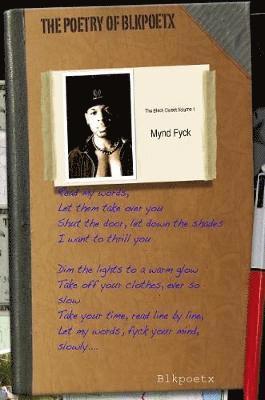 THE POETRY OF BLKPOETX
The Black Closet Volume 1
Mynd Fyck
Read my words,
Let them take over you
Shut the door, let down the shades
I want to thrill you
Dim the lights to a warm glow
Take off your clothes, ever so
slow
Take your time, read line by line,
Let my words, fyck your mind,
slowly....
Blkpoetx